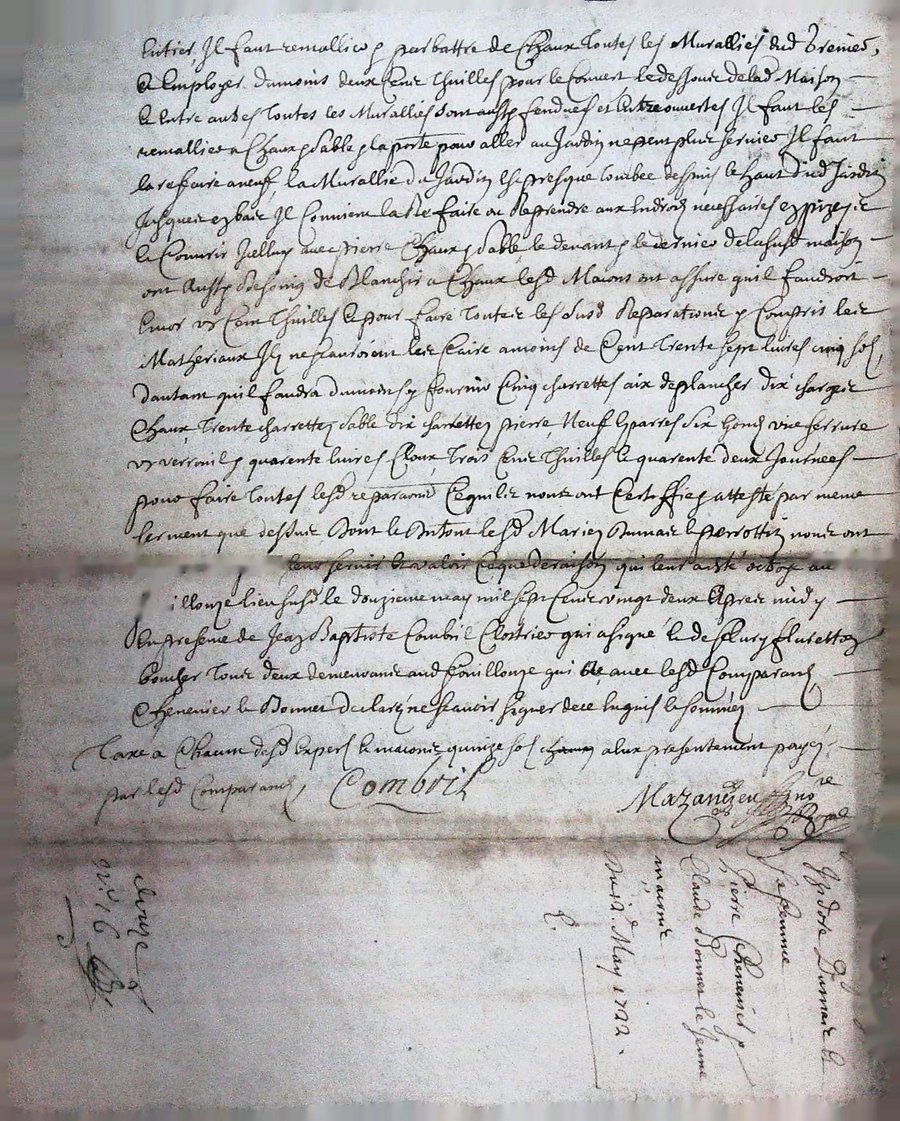 Entier, Il faut remallier & parbattre de Chaux toutes les Murallies dud Grenier,
Et Employer dumoins deux Cent Thuilles pour le Couvert & le dessous de lad Maison
& Entre autres toutes les Murallies sont aussy fendues et Entreouvertes Il faut les
remallier a Chaux & sable & la porte pour aller au Jardin ne peut plus servir Il faut
la refaire a neuf, la Murallie du Jardin Est presque tombée despuis le haut dud Jardin
Jusques en bas Il Convient la Refaire ou Reprendre aux Endroits necessaires en pizey &
le Couvrir avec pierre Chaux & sable, le devant & le dernier de lasusd maison
ont Aussy Besoing de Blanchir a Chaux lesd Maçons ont assuré quil faudroit
Encor un Cent Thuilles Et pour faire toutes les susd Reparations y Compris les
Matheriaux Ils ne scauroient les faire a moins de Cent Trente sept livres cinq sols,
Dautant quil faudra dumoins y fournir Cinq charrettes aix de plancher dix charges
Chaux, Trente charrettes sable dix charrettes pierre, Neuf Esparres six gonds une serrure
un verrouil & quarente livres Cloux Trois Cent Thuilles & quarente deux Journées
pour faire toutes lesd reparations Ce quils nous ont Certiffié & attesté par meme
serment que dessus Dont & du tout lesd Mariez Dumas & perrottin nous ont
leur servir & valoir Ce que de raison qui leur a esté octroyé au
illouze lieu susd le douzieme may mil sept Cent vingt deux Apres midy
En presence de Jean Baptiste Combril Clostrier qui a signé & de fleury fleuretton
boucher tous deux demeurants aud Fouillouze qui & avec lesd Comparants
Chenevier & Bonnet declaré ne scavoir signer de ce Enquis & sommez
Taxe a Chacun desd Experts & maçons quinze sols a Eux presentement payez
par lesd Comparants, Combril
Mazancieu No.re Royal
Ysidore Dumas &
Sa femme
Pierre Chenevier &
Claude Bonnet le Jeune
massons
Du 12.e May 1722.